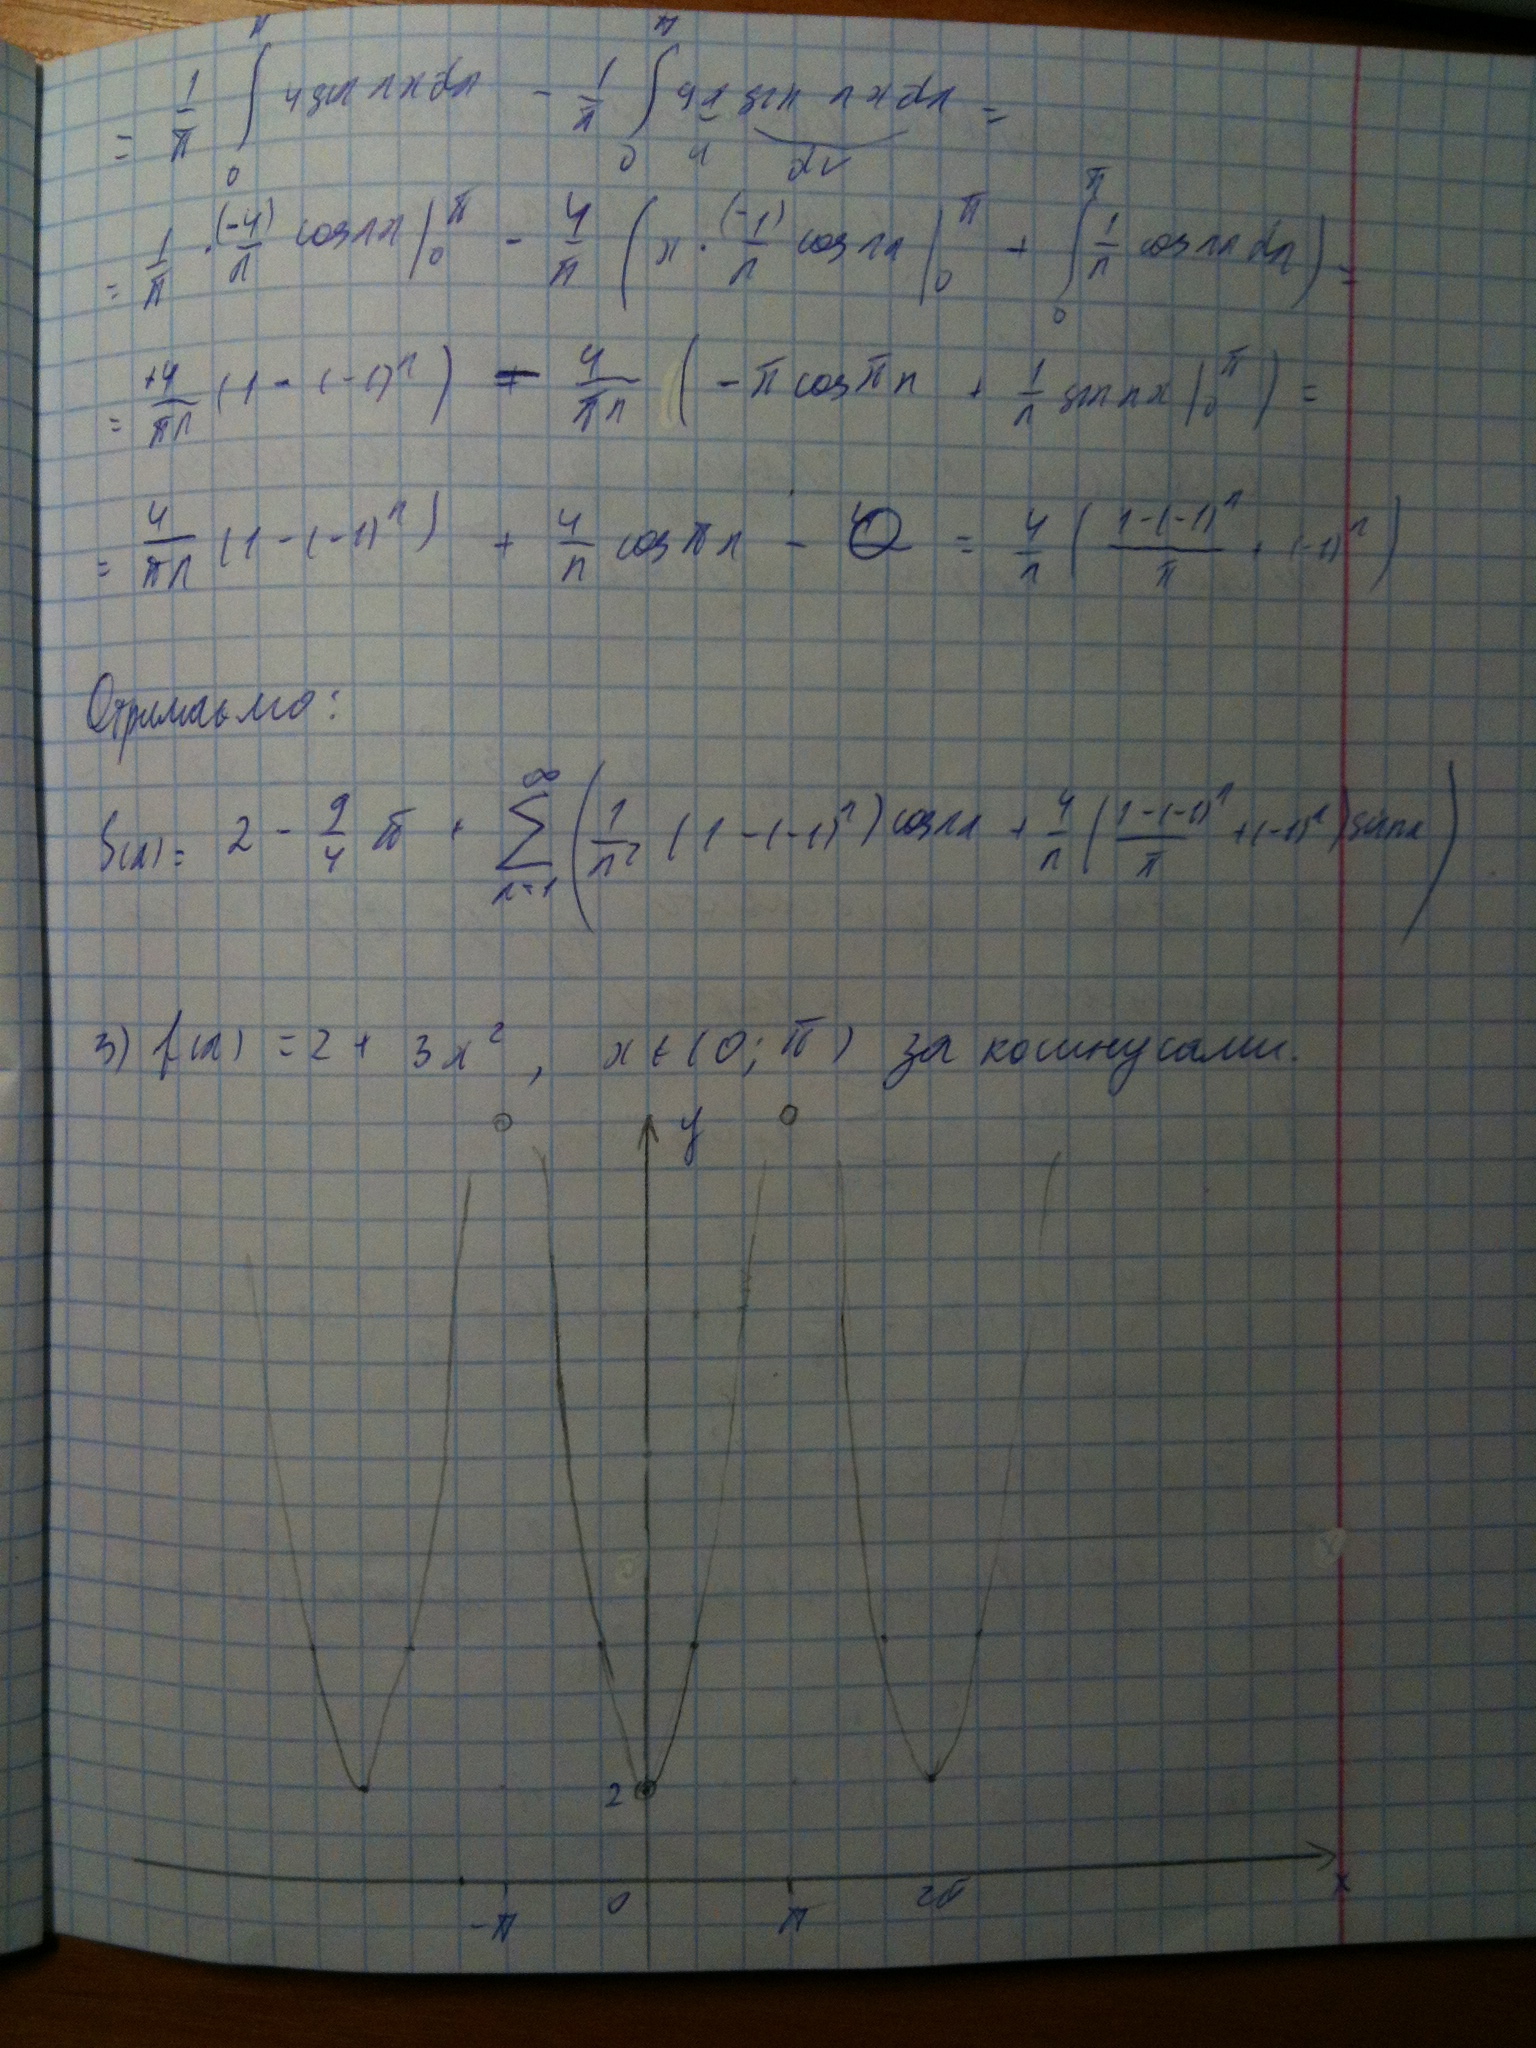 = 1/π ∫₀^π 4 sin nx dx - 1/π ∫₀^π 4x sin nx dx =
u dv
= 1/π · (-4)/n cos nx |₀^π - 4/π ( x · (-1)/n cos nx |₀^π + ∫₀^π 1/n cos nx dx ) =
= +4/πn (1 - (-1)ⁿ) - 4/πn ( - π cos πn + 1/n sin nx |₀^π ) =
= 4/πn (1 - (-1)ⁿ) + 4/n cos πn - 0 = 4/n ( (1-(-1)ⁿ)/π + (-1)ⁿ )
Отримаємо:
S(x) = 2 - 9/4 π + ∑_{n=1}^∞ ( 1/n² (1 - (-1)ⁿ) cos nx + 4/n ( (1-(-1)ⁿ)/π + (-1)ⁿ ) sin nx )
3) f(x) = 2 + 3x², x ∈ (0; π) за косинусами.
y
2
-π 0 π 2π x